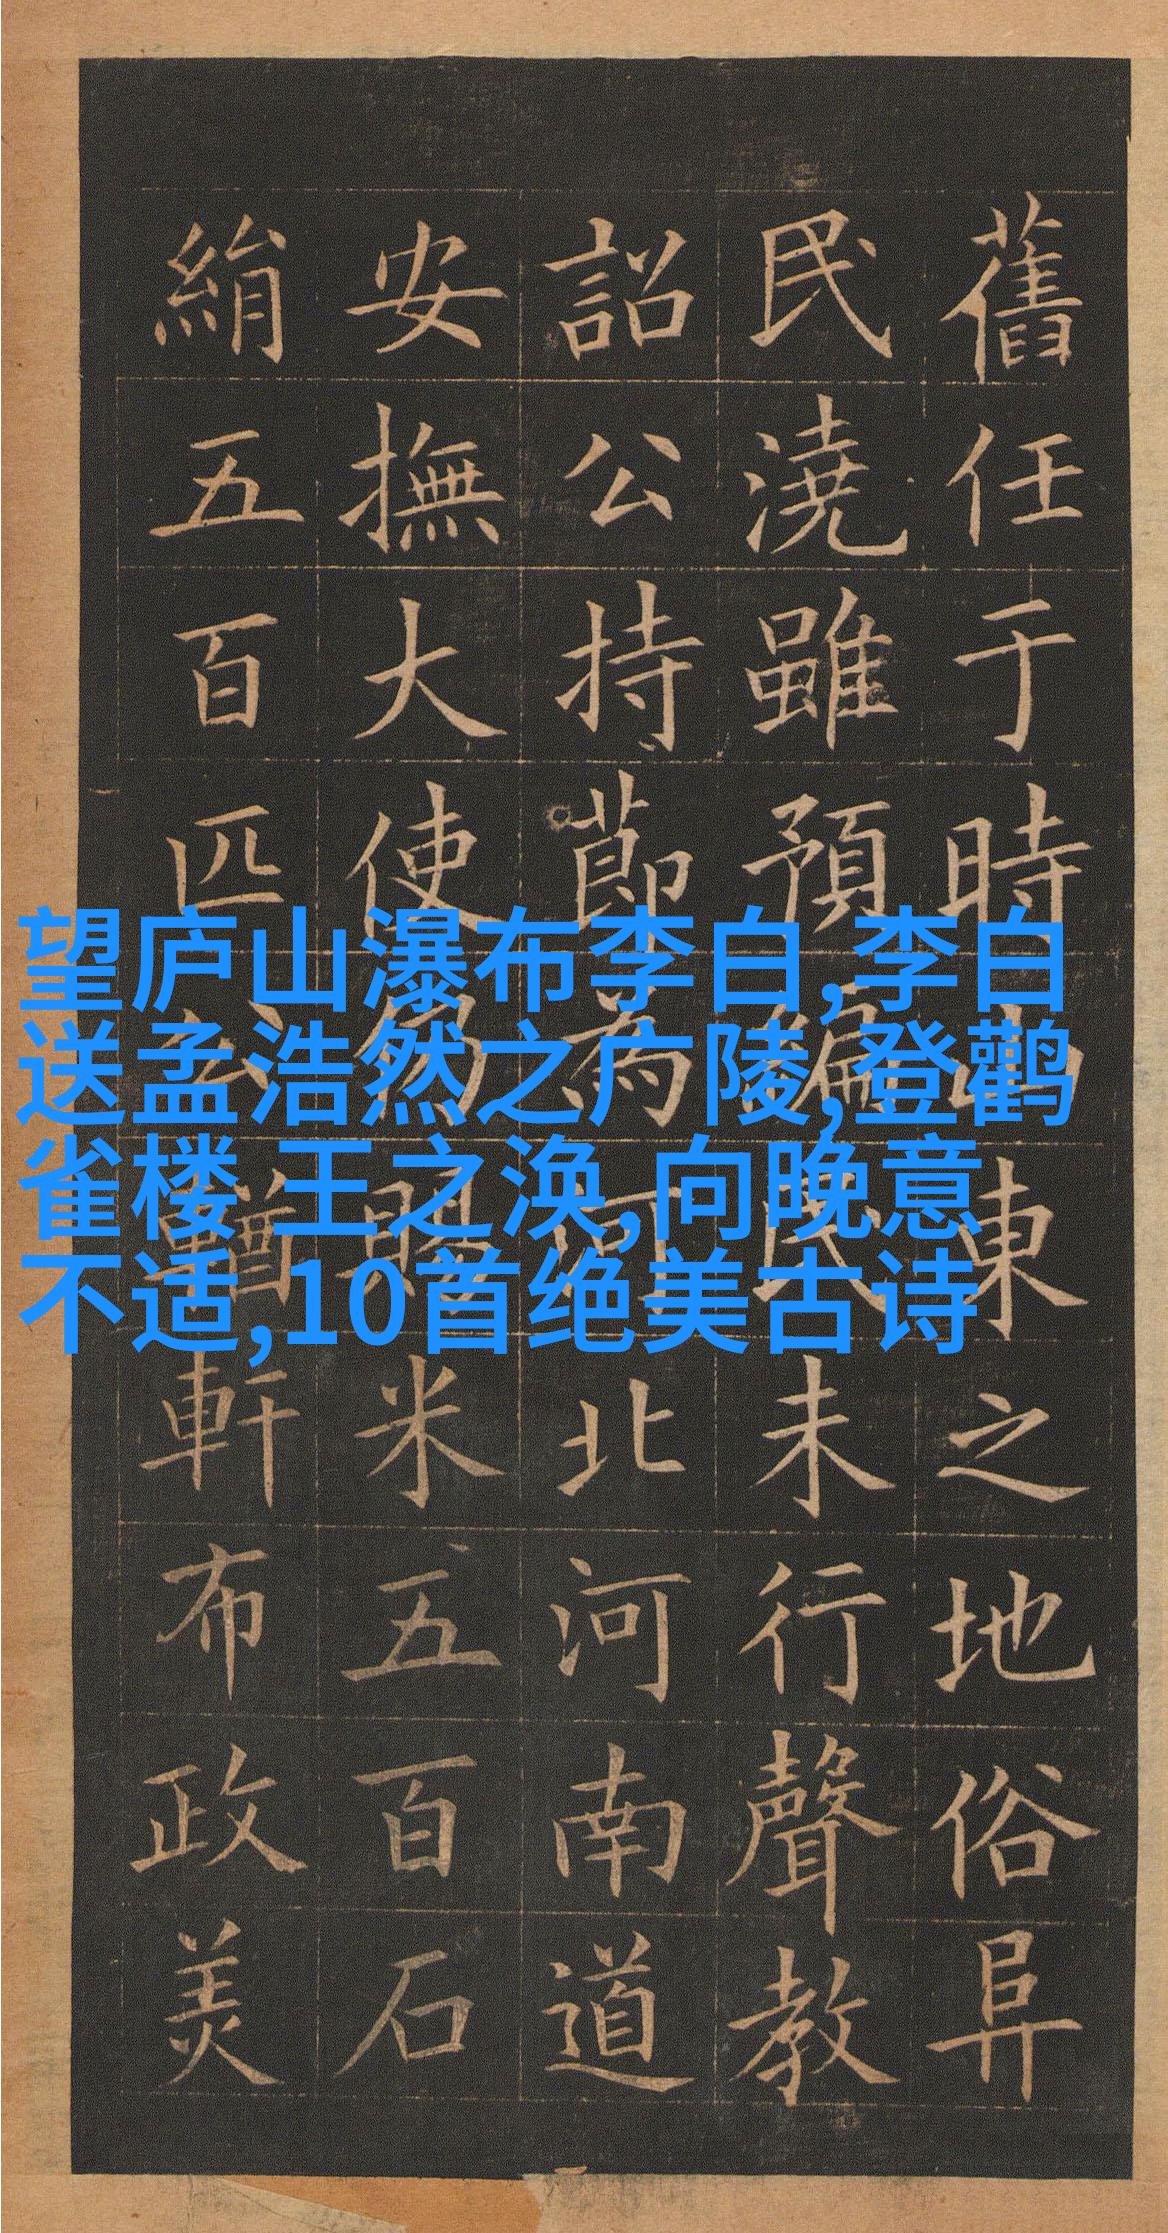 望庐山瀑布李白,李白
送孟浩然之广陵,登鹳
雀楼 王之涣,向晚意
不适,10首绝美古诗
舊任于時山東之地俗阜
民澆雖預編民未行聲教
詔公持節為河北河南道
安撫大使仍賜米五百石
絹五百匹輶軒布政美